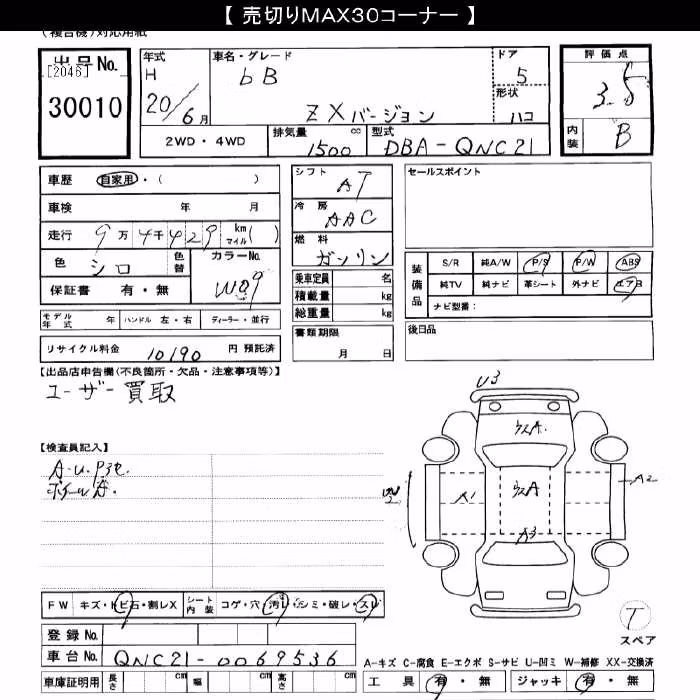 【 売切りMAX30コーナー 】
(複合機)対応用紙
出品No.
[2046]
30010
年式
H
20/6月
車名・グレード
bB
ZXバージョン
ドア
5
形状
ハコ
評価点
3.5
内装
B
2WD・4WD
排気量
1500
cc
型式
DBA-QNC21
車歴
自家用・( )
車検 年 月
走行 9万 4千 4 2 9 km マイル( )
色
シロ
色替
カラーNo.
W09
保証書 有・無
シフト
AT
冷房
AAC
燃料
ガソリン
乗車定員 名
積載量 kg
総重量 kg
書類期限
月 日
セールスポイント
装備品
S/R 純A/W P/S P/W ABS
純TV 純ナビ 革シート 外ナビ エアB
ナビ型番:
後日品
モデル年式 年 ハンドル 左・右 ディーラー・並行
リサイクル料金 10190 円 預託済
【出品店申告欄(不良箇所・欠品・注意事項等)】
ユーザー買取
【検査員記入】
A-U P3セ.
ホイールA.
U3
ウスA.
ウスA
A1
A2
A3
T
スペア
FW キズ・トビ石・割レX シート内装 コゲ・穴・汚レ・シミ・破レ・スレ
登録No.
車台No. QNC21-0069536
車庫証明用 長さ cm 幅 cm 高さ cm
A-キズ C-腐食 E-エクボ S-サビ U-凹ミ W-補修 XX-交換済
工具 有・無 ジャッキ 有・無